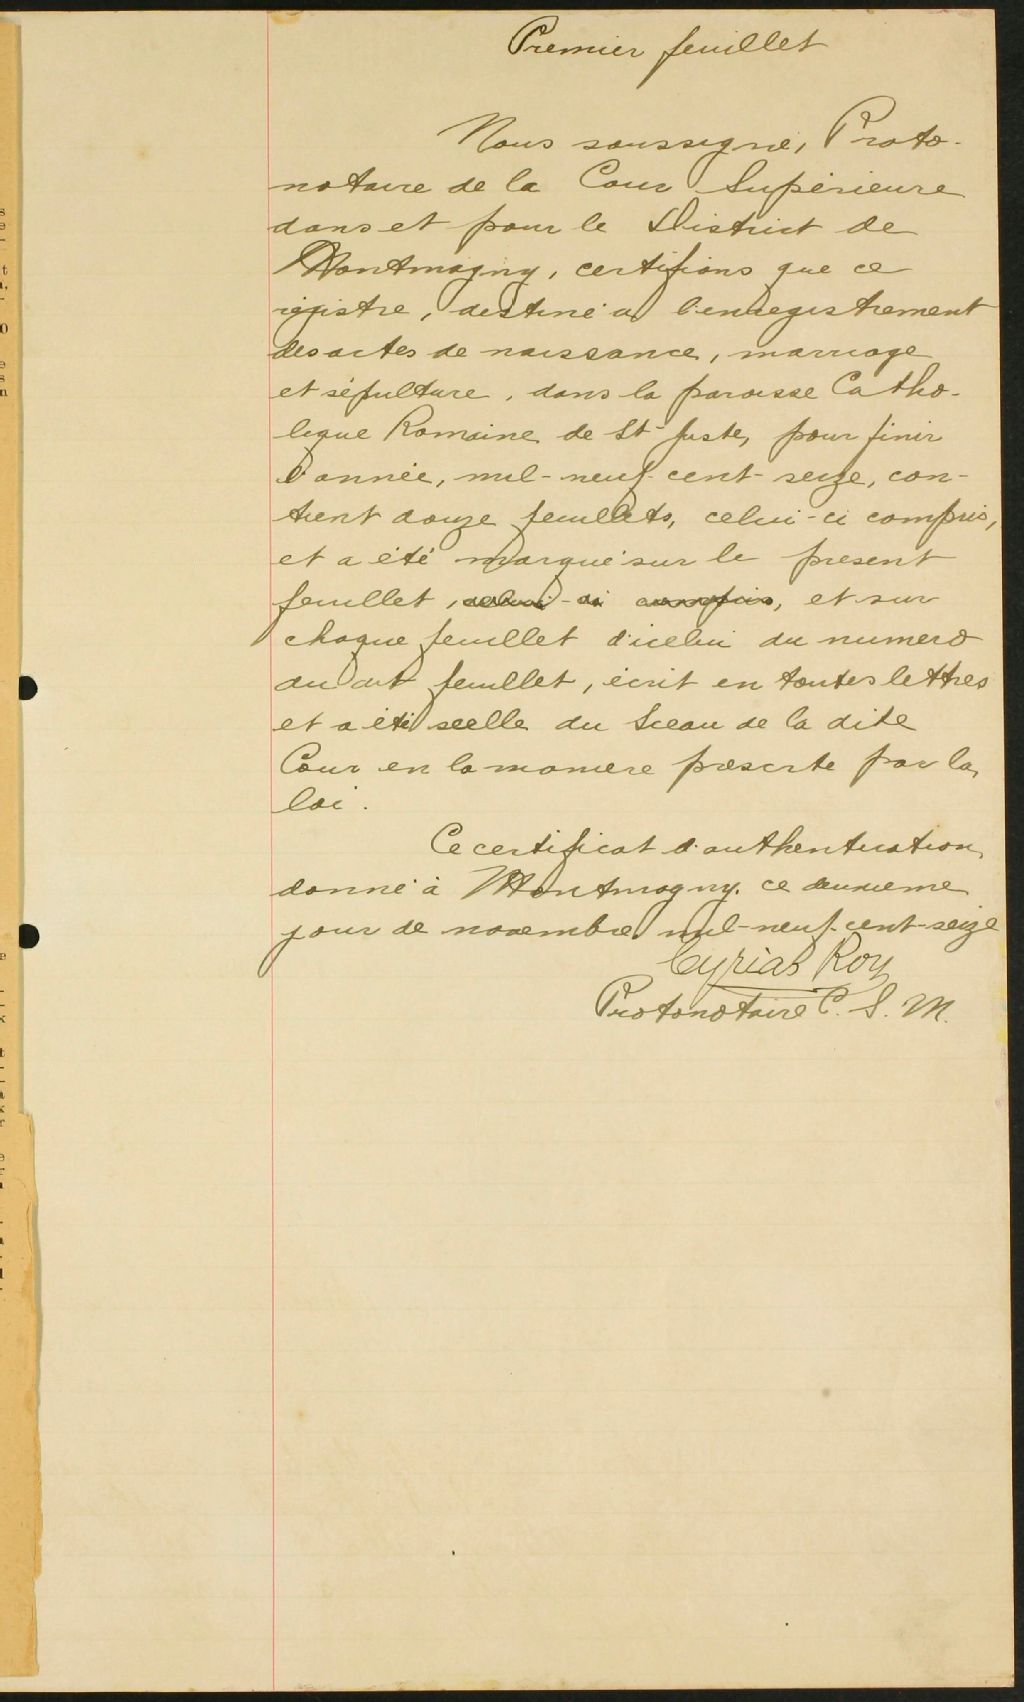 Premier feuillet
Nous soussigné, Proto-
notaire de la Cour Supérieure
dans et pour le District de
Montmagny, certifions que ce
régistre, destiné a l'enregistrement
des actes de naissance, marriage
et sépulture, dans la paroisse Catho-
lique Romaine de St-Juste, pour finir
l'année, mil-neuf-cent-seize, con-
tient douze feuillets, celui-ci compris,
et a été marqué sur le présent
feuillet, celui-ci compris, et sur
chaque feuillet d'icelui du numero
du dit feuillet, écrit en toutes lettres
et a été scellé du Sceau de la dite
Cour en la manière prescrite par la
loi.
Ce certificat d'authentication
donné à Montmagny, ce deuxième
jour de novembre mil-neuf-cent-seize
Cyrias Roy
Protonotaire C. S. M.